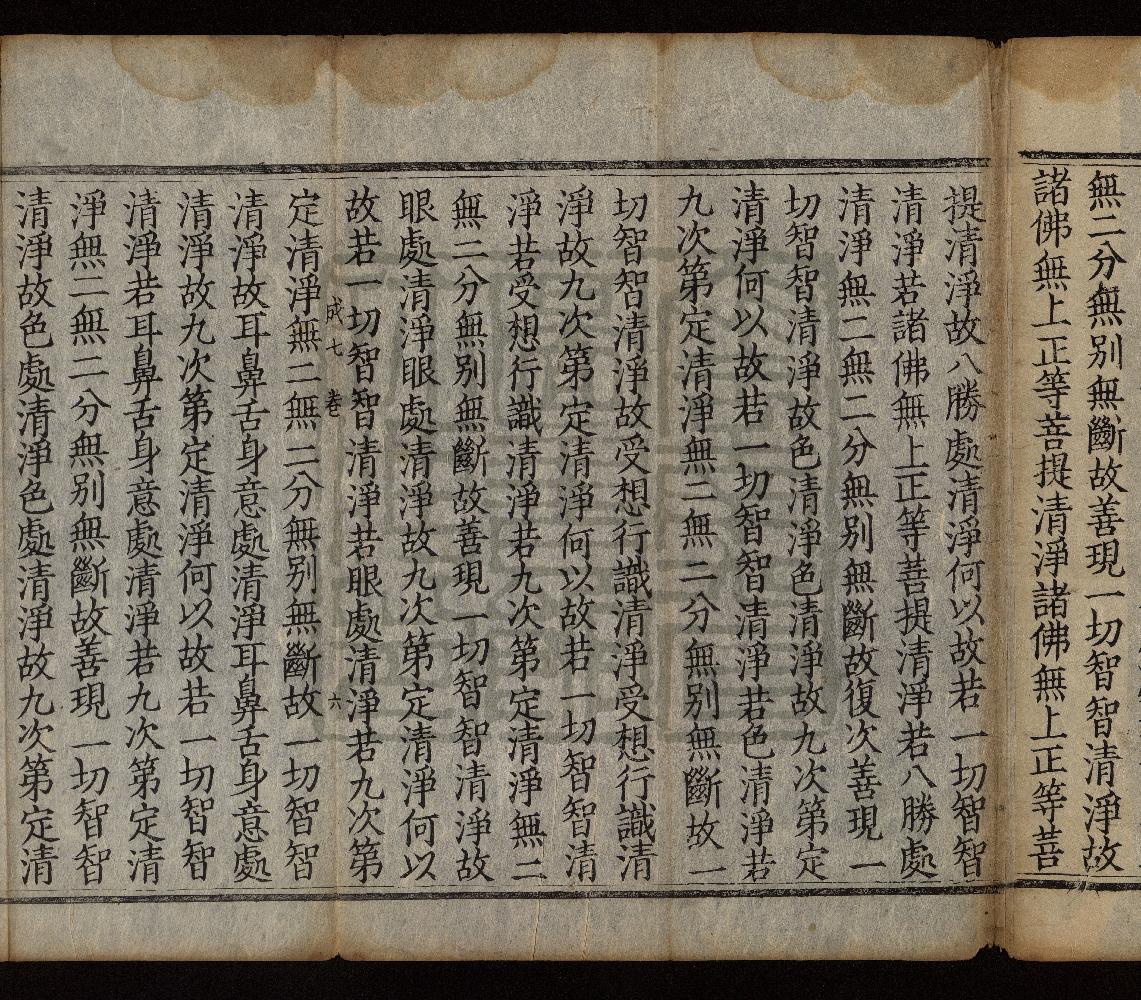 無二分無別無斷故善現一切智智清淨故
諸佛無上正等菩提清淨諸佛無上正等菩
提清淨故八勝處清淨何以故若一切智智
清淨若諸佛無上正等菩提清淨若八勝處
清淨無二無二分無別無斷故復次善現一
切智智清淨故色清淨色清淨故九次第定
清淨何以故若一切智智清淨若色清淨若
九次第定清淨無二無二分無別無斷故一
切智智清淨故受想行識清淨受想行識清
淨故九次第定清淨何以故若一切智智清
淨若受想行識清淨若九次第定清淨無二
無二分無別無斷故善現一切智智清淨故
眼處清淨眼處清淨故九次第定清淨何以
故若一切智智清淨若眼處清淨若九次第
成七 卷 六
定清淨無二無二分無別無斷故一切智智
清淨故耳鼻舌身意處清淨耳鼻舌身意處
清淨故九次第定清淨何以故若一切智智
清淨若耳鼻舌身意處清淨若九次第定清
淨無二無二分無別無斷故善現一切智智
清淨故色處清淨色處清淨故九次第定清